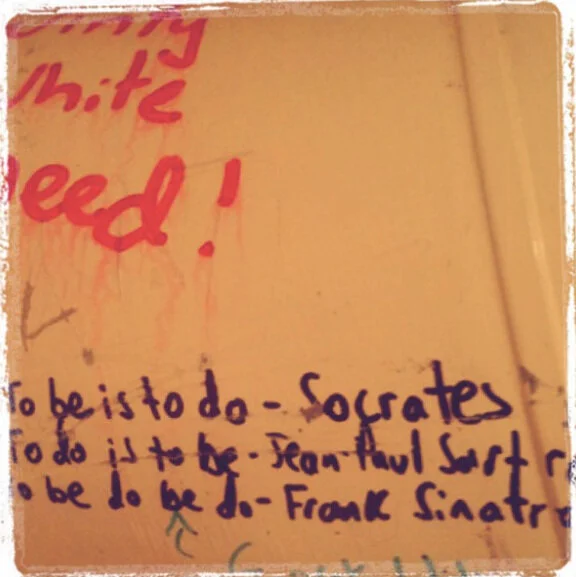 white
need!
To be is to do - Socrates
To do is to be - Jean Paul Sartr
o be do be do - Frank Sinatra